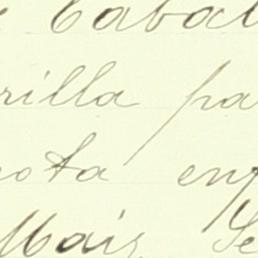 Cabal
rilla pa
ota en
Mais Se